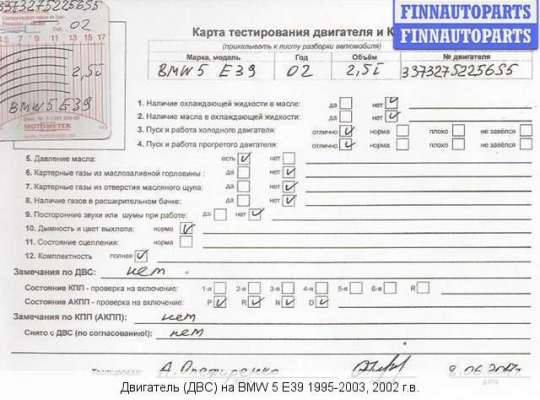 33732752256S5
FINNAUTOPARTS
FINNAUTOPARTS
02
15 17
2,5i
BMW 5 E39
MOTOMETER
Карта тестирования двигателя и К
(прикалывать к листу разборки автомобиля)
Марка, модель Год Объём № двигателя
BMW 5 E39 02 2,5i 33732752256S5
1. Наличие охлаждающей жидкости в масле: да нет
2. Наличие масла в охлаждающей жидкости: да нет
3. Пуск и работа холодного двигателя: отлично норма плохо не завёлся
4. Пуск и работа прогретого двигателя: отлично норма плохо не завёлся
5. Давление масла: есть нет
6. Картерные газы из маслозаливной горловины: да нет
7. Картерные газы из отверстия масляного щупа: да нет
8. Наличие газов в расширительном бачке: да нет
9. Посторонние звуки или шумы при работе: да нет
10. Дымность и цвет выхлопа: норма
11. Состояние сцепления: норма
12. Комплектность полная
Замечания по ДВС: нет
Состояние КПП - проверка на включение: 1-я 2-я 3-я 4-я 5-я 6-я R
Состояние АКПП - проверка на включение: P R N D
Замечания по КПП (АКПП): нет
Снято с ДВС (по согласованию!): нет
Тестировал
Двигатель (ДВС) на BMW 5 E39 1995-2003, 2002 г.в.